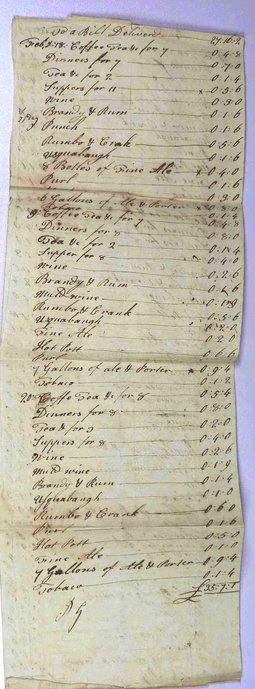 To a Bill Delivered 27.10.2
Feb 18 Coffee Tea &c for 7 0.4.8
Dinners for 7 0.7.0
Tea &c for 2 0.1.4
Suppers for 11 x 0.5.6
Wine 0.5.0
Brandy & Rum 0.1.6
Punch 0.1.6
Rumbo & Crank 0.5.6
Usquabaugh 0.1.6
8 Bottles of Fine Ale x 0.4.0
Purl 0.1.6
6 Gallons of Ale & Porter 0.8.0
Coffee Tea &c for 7 0.4.8
Dinners for 8 0.8.0
Tea &c for 2 0.1.4
Supper for 8 0.4.0
Wine 0.2.6
Brandy & Rum 0.1.6
Muld wine 0.1.9
Rumbo & Crank 0.5.6
Usquabaugh 0.2.0
Fine Ale 0.2.0
Hot Pott
Purl 0.6.6
7 Gallons of ale & Porter x 0.9.4
Tobaco 0.1.2
20th Coffe Tea &c for 8 0.5.4
Dinners for 8 0.8.0
Tea &c for 3 0.2.0
Suppers for 8 0.4.0
Wine 0.2.6
Muld wine 0.1.9
Brandy & Rum 0.1.4
Usquabaugh 0.1.0
Rumbo & Crank 0.6.0
Purl 0.1.6
Hot Pott 0.5.0
Fine Ale 0.1.0
7 Gallons of Ale & Porter 0.9.4
Tobaco 0.1.4
£35.7.1